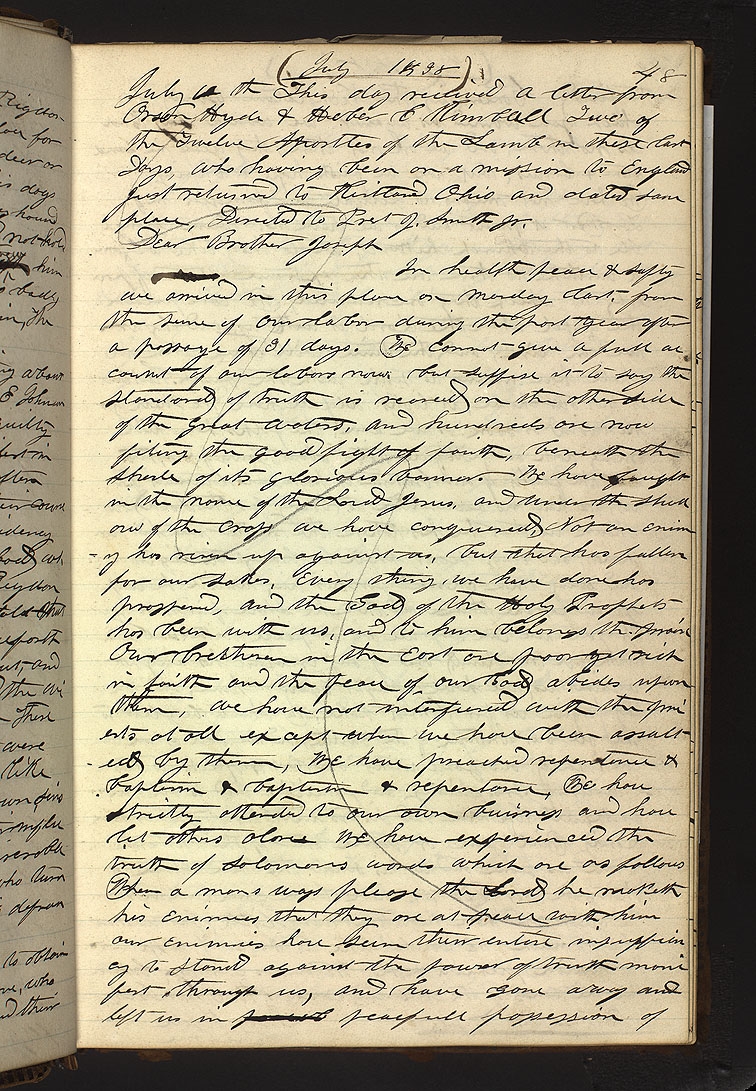 (July 1838)
48
July 6th This day received a letter from
Orson Hyde & Heber C Kimball Two of
the Twelve Apostles of the Lamb in these last
Days, who having been on a mission to England
just returned to Kirtland Ohio and dated same
place, Directed to Prest J. Smith Jr.
Dear Brother Joseph
In health peace & safty
we arrived in this place on Monday last, from
the scene of our labor during the past year after
a passage of 31 days. We cannot give a full ac
count of our labors now, but suffise it to say the
standard of truth is reared on the other side
of the great waters, and hundreds are now
fiting the good fight of faith, beneath the
shade of its glorious banner. We have fought
in the name of the Lord Jesus, and under the shad
ow of the cross we have conquered, Not an enim
y has risen up against us, but that has fallen
for our sakes, Every thing we have done has
prospered, and the God of the Holy Prophets
has been with us, and to him belongs the praise
Our bretheren in the East are poor yet rich
in faith and the peace of our God abides upon
them, we have not interfered with the pri
ests at all except when we have been assalt
ed by them, We have preached repentance &
baptism & baptism & repentance, We have
strictly attended to our own buisness and have
let others alone We have experienced the
truth of solomons words which are as follows
When a mans ways please the Lord he maketh
his enimies that they are at peace with him
our enimies have seen their entire
to stand against the power of truth mani
fest through us, and have gone away and
left us in peacefull possession of
Rigdon
him
The
E Johnson
often
Rigdon
and
These
were
like
who turn
to obtain